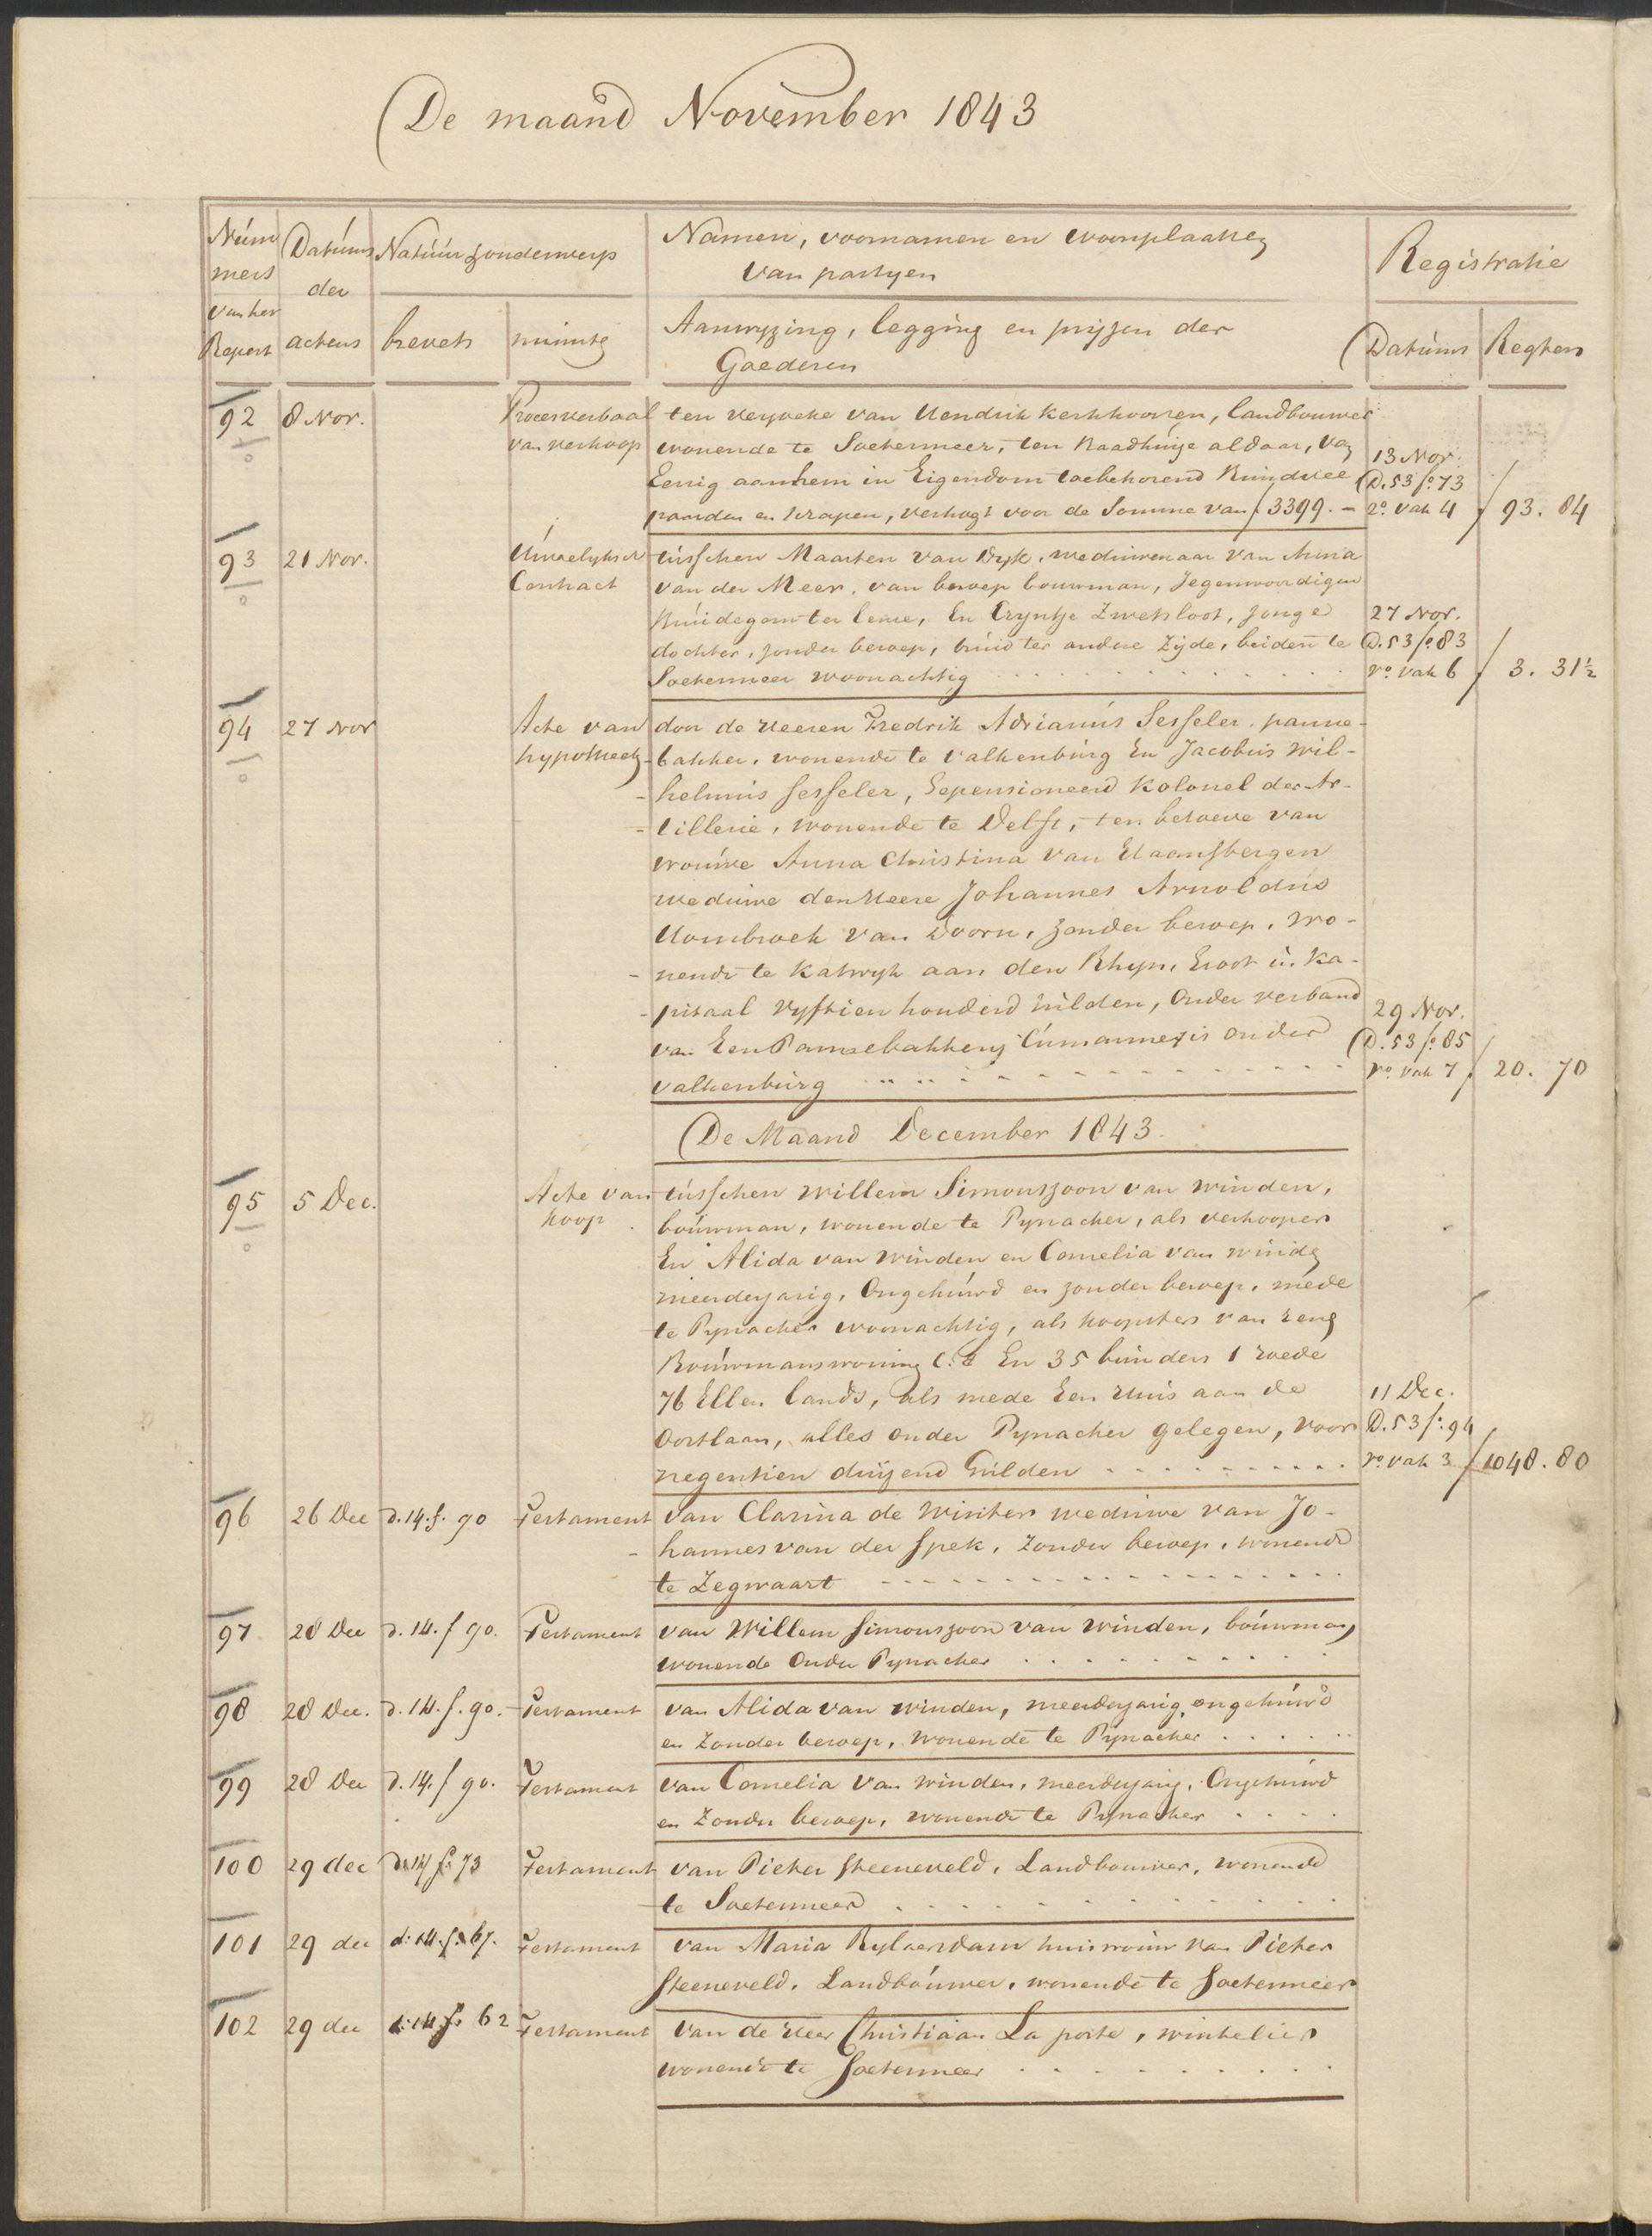 De maand November 1843
Núm
mers
van het
Repert
Datúms
der
actens
Natúúr & onderwerp
brevets
minute
Namen, voornamen en woonplaatsen
van partyen
Aanwyzing, legging en pryzen der
Goederen
Registratie
Datúms
Regten
92 8 Nov. Procesverbaal ten verzoeke van Hendrik Kerkhooven, landbouwer
van verkoop wonende te Soetermeer, ten Raadhuize aldaar, van 13 Nov.
Eenig aan hem in Eigendom toebehorend Rundvee D. 53 fo. 73
paarden en schapen, verkogt voor de Somme van ƒ 3399. - 2o. vak 4 ƒ 93. 84
93 21 Nov. Húwelyksch tússchen Maarten van Dyk, weduwenaar van Anna
Contract van der Meer, van beroep bouwman, Jegenwoordigen
Brúidegom ter eene, En Tryntje Zwetsloot, jonge 27 Nov.
dochter, zonder beroep, brúid ter andere Zijde, beiden te D. 53 fo. 83
Soetermeer woonachtig . . . . . ro. vak 6 ƒ 3. 31½
94 27 Nov Acte van door de Heeren Fredrik Adrianús Sesseler, panne-
hypotheek -bakker, wonende te Valkenbúrg En Jacobus Wil-
-helmus Sesseler, Gepensioneerd Kolonel der Ar-
-tillerie, wonende te Delft, ten behoeve van
vrouwe Anna Christina van
weduwe den Heere Johannes Arnoldus
Hombroek van Doorn, zonder beroep, wo-
-nende te Katwyk aan den Rhyn, Groot in Ka-
-pitaal Vyftien honderd Gúlden, Onder verband 29 Nov.
van Een Pannebakkery Cúm annexis onder D. 53 fo. 85
Valkenbúrg . . . . . ro. vak 7 ƒ 20. 70
De Maand December 1843.
95 5 Dec. Acte van tússchen Willem Simonszoon van Winden,
koop. boúwman, wonende te Pynacker, als verkooper
En Alida van Winden en Cornelia van Winden
meerderjarig, Ongehúwd en zonder beroep, mede
te Pynacker woonachtig, als koopsters van Eene
Boúwmanswoning C.A En 35 bunders 1 roede
76 Ellen lands, als mede Een Huis aan de 11 Dec.
Oostlaan, alles onder Pynacker gelegen, voor D. 53 fo. 94
negentien duizend Gúlden . . . . . ro. vak 3 ƒ 1048. 80
96 26 Dec d. 14. f. 90 Testament van Clasina de Winter weduwe van Jo-
-hannes van der Spek, Zonder beroep, wonende
te Zegwaart . . . . .
97 28 Dec d. 14. f 90. Testament van Willem Simonszoon van Winden, boúwman
wonende Onder Pynacker . . . . .
98 28 Dec. d. 14. f. 90. Testament van Alida van Winden, meerderjarig, ongehúwd
en Zonder beroep, wonende te Pynacker . . . . .
99 28 Dec d. 14. f 90. Testament van Cornelia van Winden, meerderjarig, Ongehúwd
en Zonder beroep, wonende te Pynacker . . . .
100 29 dec d. 14 fo 73 Testament van Pieter Steeneveld, Landbouwer, wonende
te Soetermeer . . . . .
101 29 dec d. 14. fo 67. Testament van Maria Rylaersdam huisvrouw van Pieter
Steeneveld, Landboúwer, wonende te Soetermeer
102 29 dec d. 14 fo 62 Testament van de Heer Christiaan La porte, winkelier
wonende te Soetermeer . . . . .